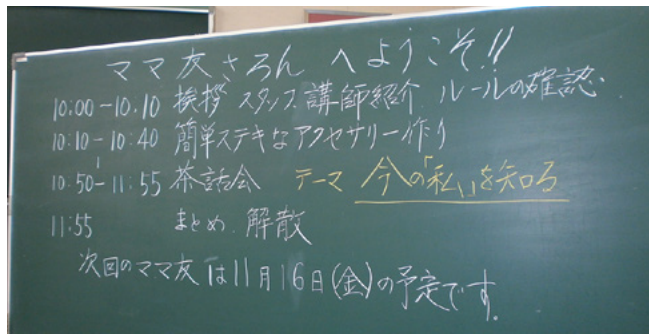 ママ友さろん へようこそ!!
10:00-10:10 挨拶 スタッフ、講師紹介、ルールの確認、
10:10-10:40 簡単ステキなアクセサリー作り
10:50-11:55 茶話会 テーマ 今の「私」を知る
11:55 まとめ、解散
次回のママ友は11月16日(金)の予定です。